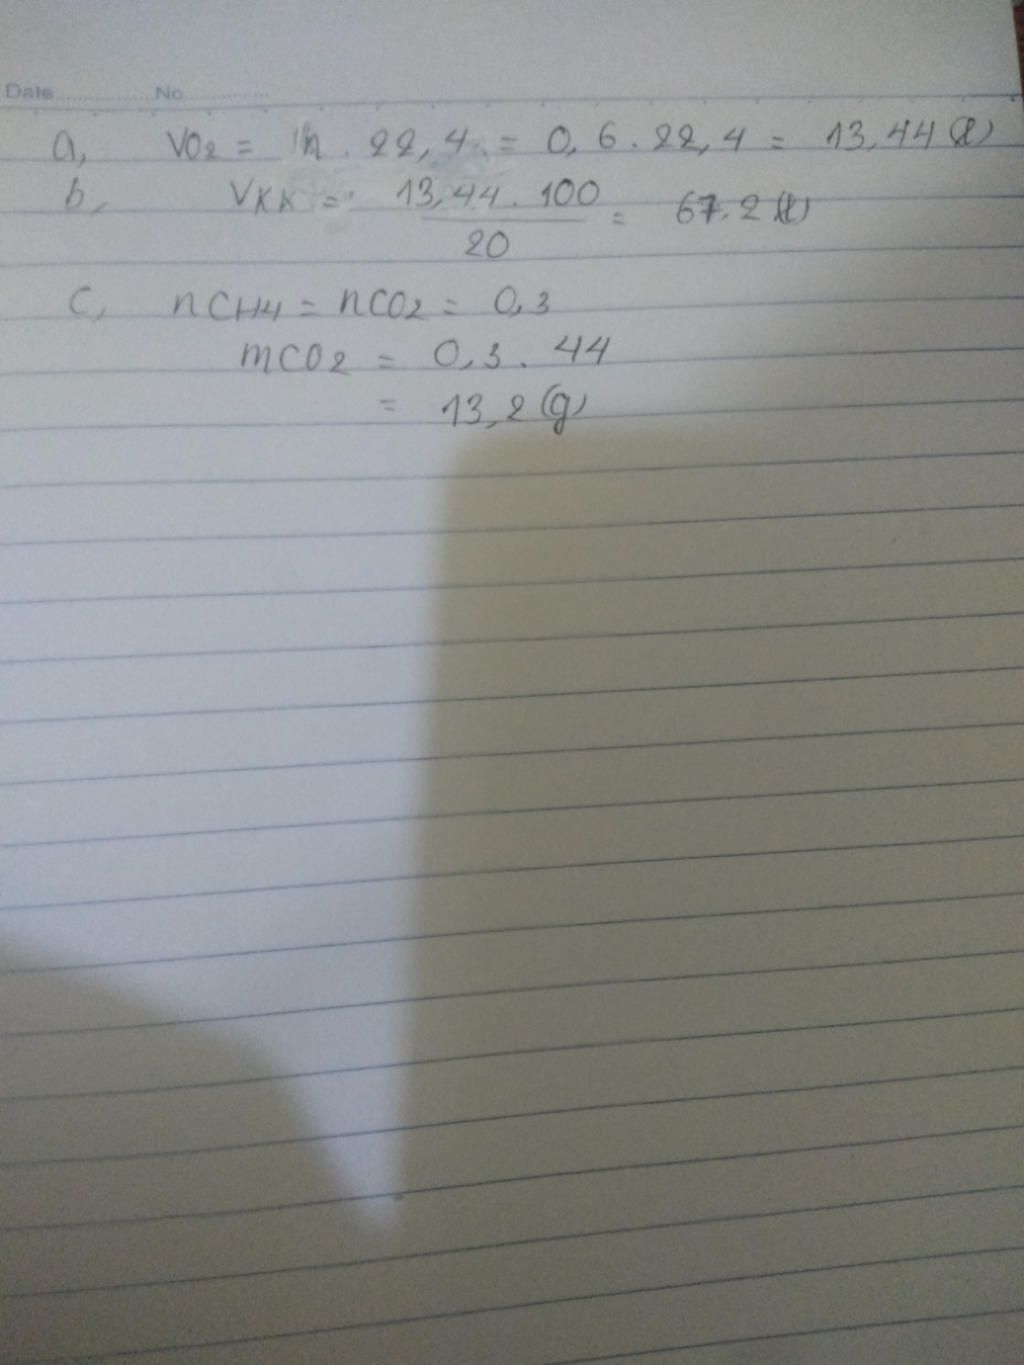 Date No
a, VO2 = n . 22,4 = 0,6 . 22,4 = 13,44 (l)
b, VKK = 13,44 . 100 / 20 = 67.2 (l)
c, nCH4 = nCO2 = 0,3
mCO2 = 0,3 . 44
= 13,2 (g)